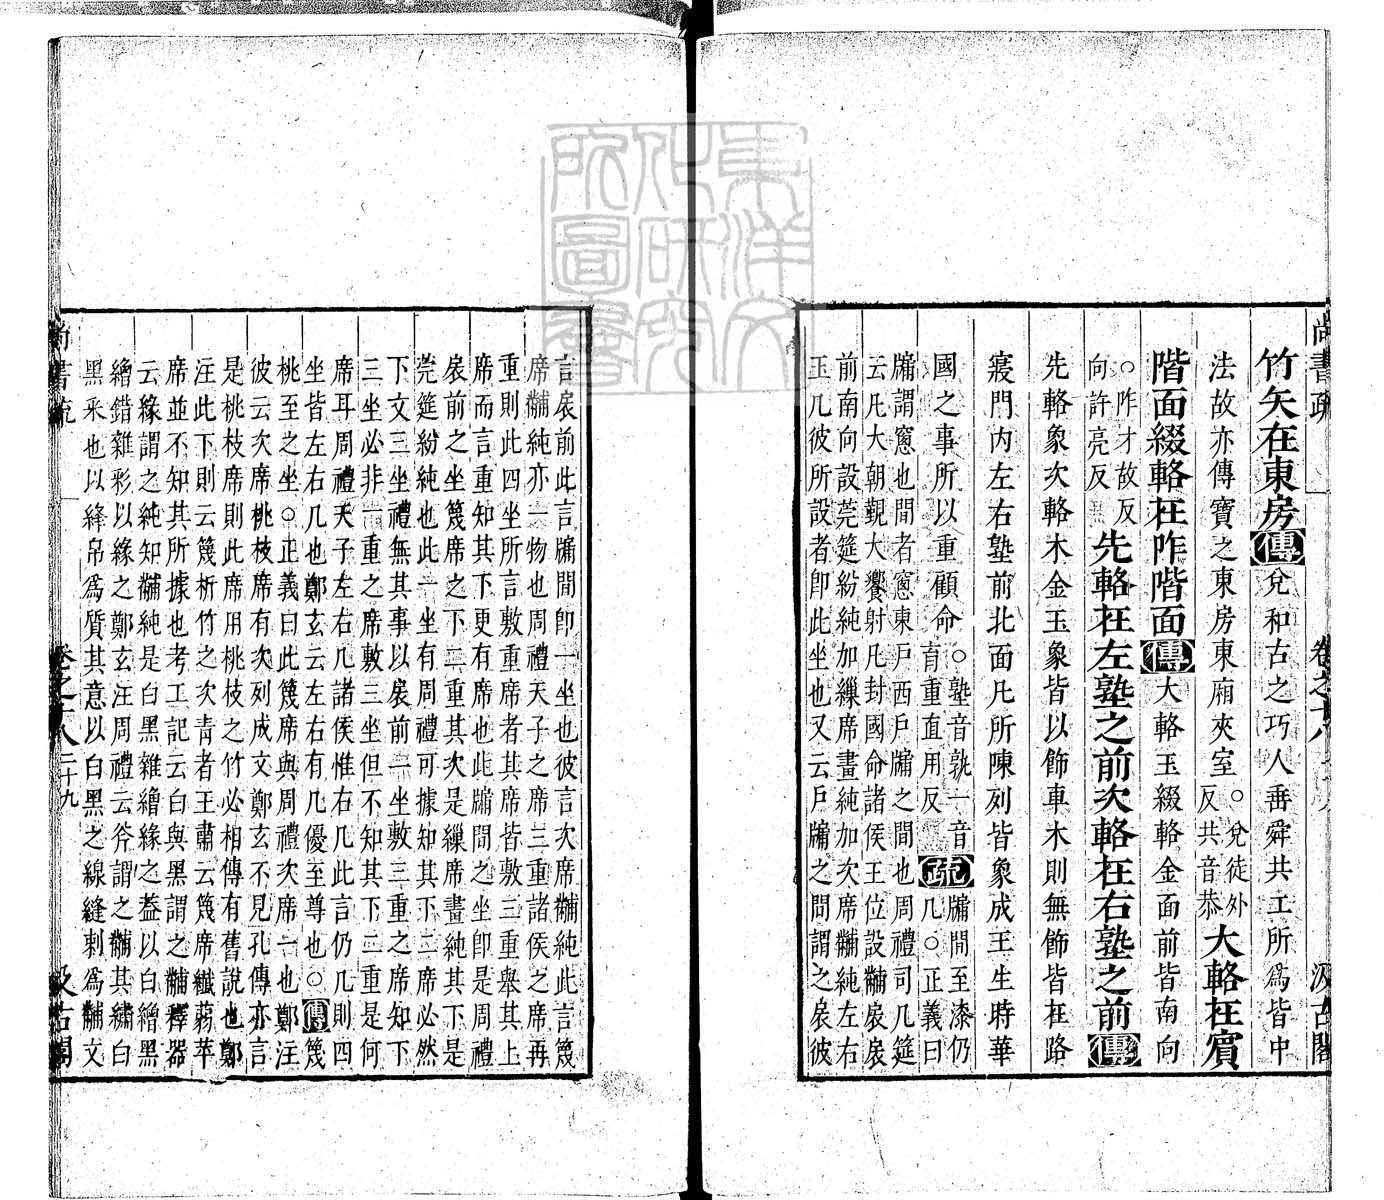 尚書疏
卷之十八
汲古閣
竹矢在東房傳兌和古之巧人垂舜共工所爲皆中
法故亦傳寶之東房東廂夾室○兌徒外反共音恭大輅在賓
階面綴輅在阼階面傳大輅玉綴輅金面前皆南向
○阼才故反向許亮反先輅在左塾之前次輅在右塾之前傳
先輅象次輅木金玉象皆以飾車木則無飾皆在路
寢門內左右塾前北面凡所陳列皆象成王生時華
國之事所以重顧命○塾音孰一音育重直用反疏牖間至漆仍几○正義曰
牖謂窻也間者窻東戶西戶牖之間也周禮司几筵
云凡大朝覲大饗射凡封國命諸侯王位設黼扆扆
前南向設莞筵紛純加繅席畫純加次席黼純左右
玉几彼所設者即此坐也又云戶牖之間謂之扆彼
言扆前此言牖間即一坐也彼言次席黼純此言篾
席黼純亦一物也周禮天子之席三重諸侯之席再
重則此四坐所言敷重席者其席皆敷三重舉其上
席而言重知其下更有席也此牖間之坐即是周禮
扆前之坐篾席之下二重其次是繅席畫純其下是
莞筵紛純也此一坐有周禮可據知其下二席必然
下文三坐禮無其事以扆前一坐敷三重之席知下
三坐必非一重之席敷三坐但不知其下二重是何
席耳周禮天子左右几諸侯惟右几此言仍几則四
坐皆左右几也鄭玄云左右有几優至尊也○傳篾
桃至之坐○正義曰此篾席與周禮次席一也鄭注
彼云次席桃枝席有次列成文鄭玄不見孔傳亦言
是桃枝席則此席用桃枝之竹必相傳有舊說也鄭
注此下則云篾析竹之次青者王肅云篾席纖蒻苹
席並不知其所據也考工記云白與黑謂之黼釋器
云緣謂之純知黼純是白黑雜繒緣之蓋以白繒黑
繒錯雜彩以緣之鄭玄注周禮云斧謂之黼其繡白
黑采也以絳帛爲質其意以白黑之線縫刺爲黼文
尚書疏
卷之十八
二十九
汲古閣
東洋文化研究院圖書